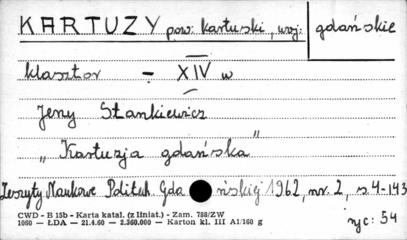 KARTUZY pow: kartuski, woj: gdańskie
klasztor - XIV w
Jerzy Stankiewicz
„Kartuzja gdańska”
Zeszyty Naukowe Politech. Gdańskiej 1962, nr. 2, s. 4-143
ryc: 54
CWD - B 15b - Karta katal. (z liniat.) - Zam. 788/ZW
1060 - ŁDA - 21.4.60 - 2.360.000 - Karton kl. III A1/160 g